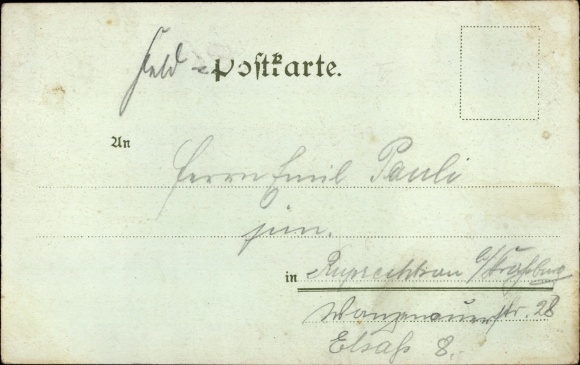 Feld-Postkarte.
An
Herrn Emil Pauli
jun.
in Ruprechtsau b/Straßburg
Wanzenauerstr. 28
Elsaß 8.